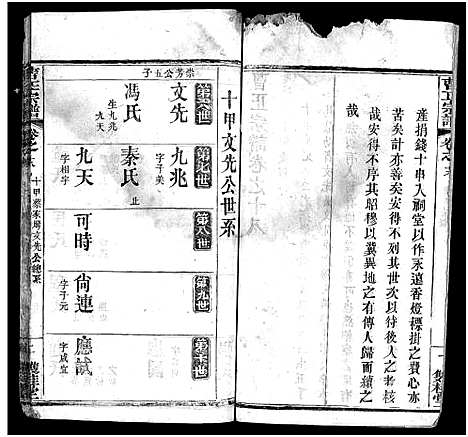 產捐錢十串入祠堂以作永遠香燈標掛之費心亦
哉安得不列其世次以待後人之考核
矣計亦善矣安得不列其世次以待後人之考核
哉安得不序其昭穆以冀異地之有傳人歸而續之
曹氏宗譜卷之十八
十甲文先公世系
第六世
文先
崇芳公五子
馮氏
生九兆
九天
第七世
九兆
字子美
秦氏
止
九天
字相字
第八世
可時
第九世
尙連
字子元
應試
字成宜
曹氏宗譜
十甲
文先公總系
雙桂堂